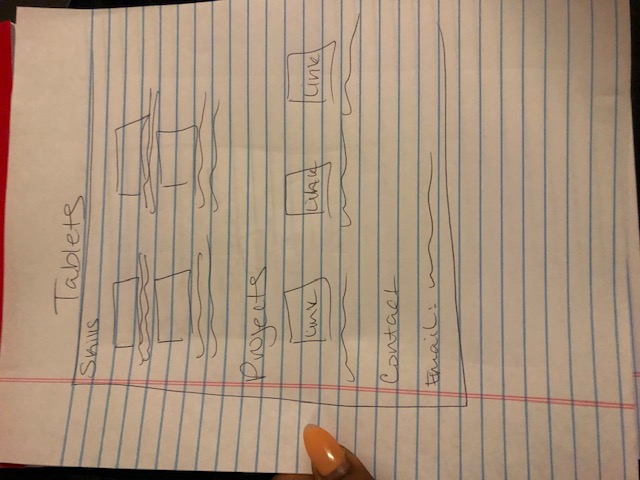 Tablets
Skills
Projects
Link Link Link
Contact
Email: